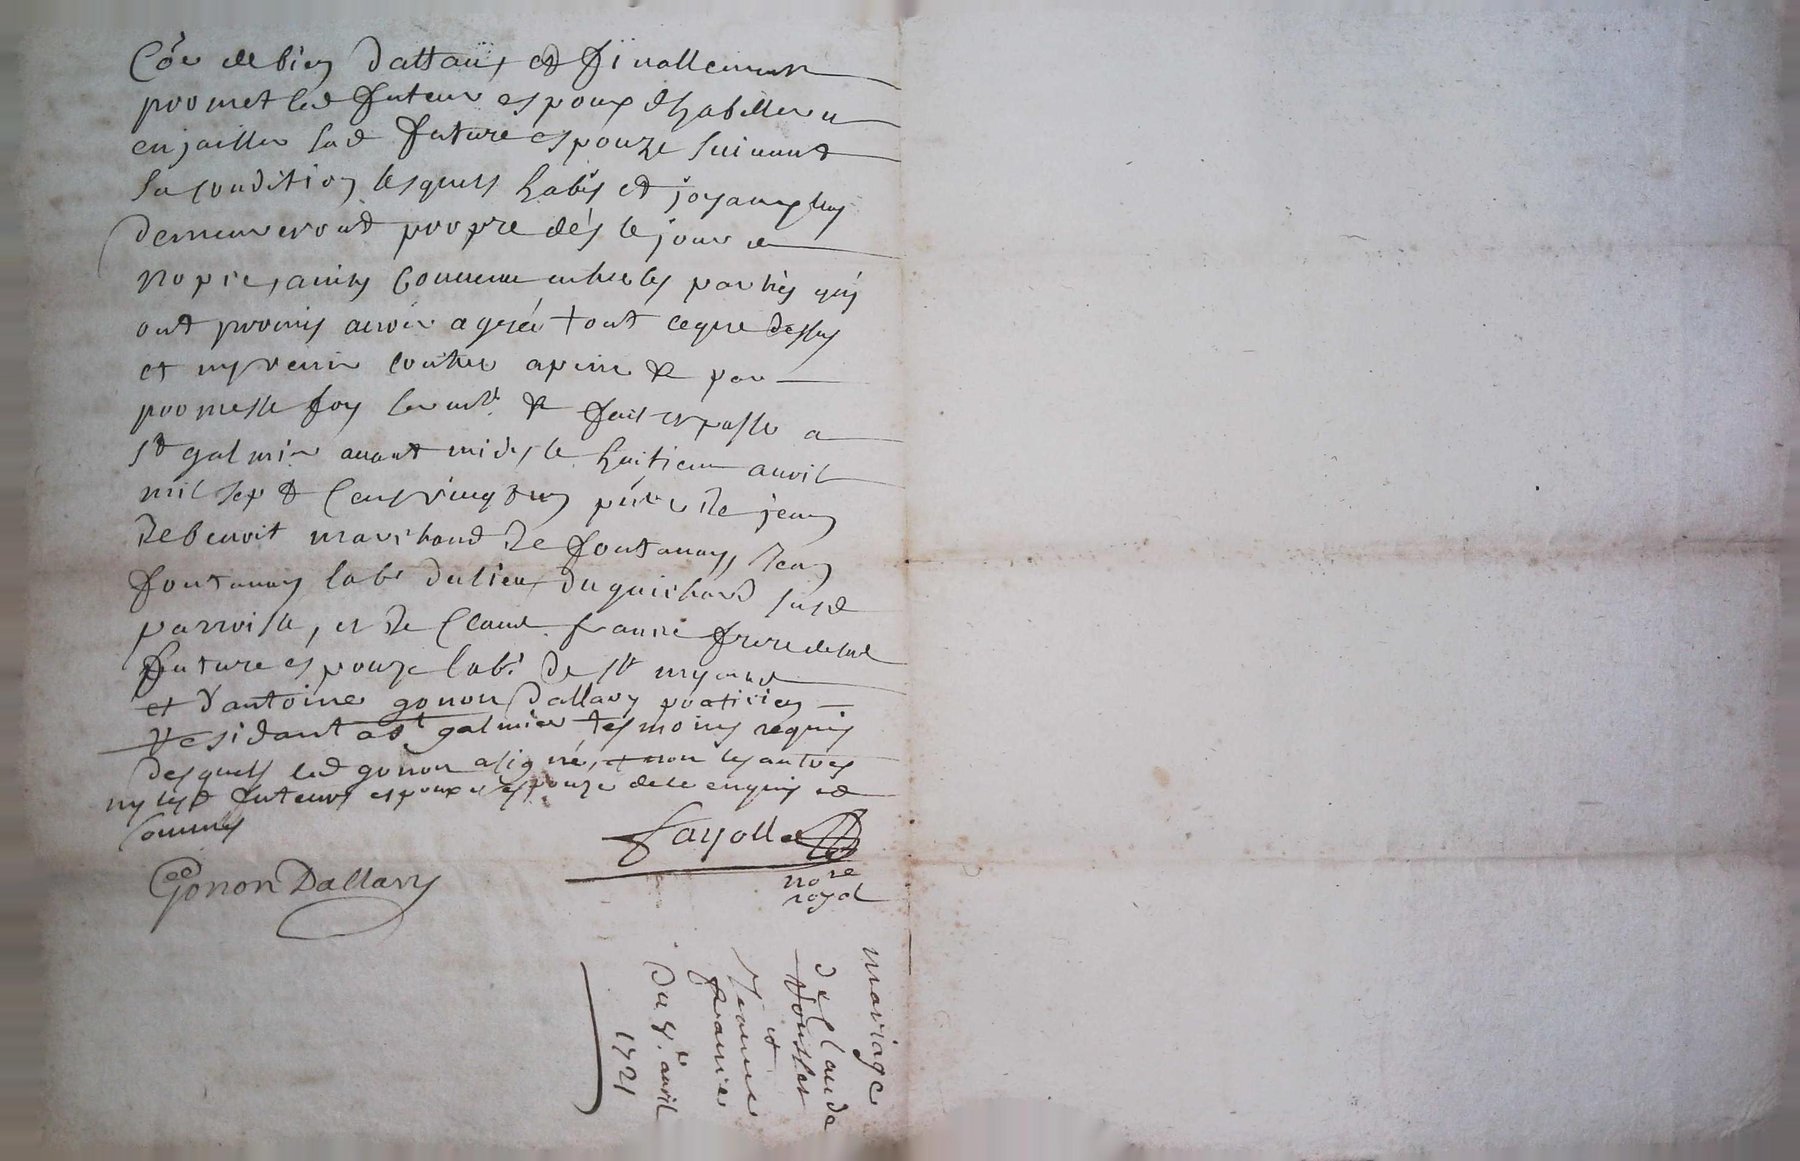 Cõe de bien dattaux, et finallement
promet led futeur espoux dhabiller et
enjailler lad future espouze suivant
sa condition lesquels habis et joyaux luy
demeureront propre dès le jour de
nopce, ainsy convenu entre les parties qui
ont promis avoir agréé tout ceque dessus
et ny venir contre a peine & par
promesse foy sermt. & fait et passé a
st galmier avant midy le huitieme avril
mil sept cens vingt un de jean
debenoit marchand de fontanay, jean
fontanay labr du lieu du guichard susd
parroisse, et de Claude france frere de lad
future espouze labr de st
et d'antoine gonon Dallary praticien
residant a st galmier tesmoins requis
desquels led gonon a signé, et non les autres
ny lesd futeurs espoux et espouze de ce enquis et
sommés
fayolle
nore
royal
Gonon Dallary
mariage
de Claude

et
Jeanne
france
Du 8e. avril
1721